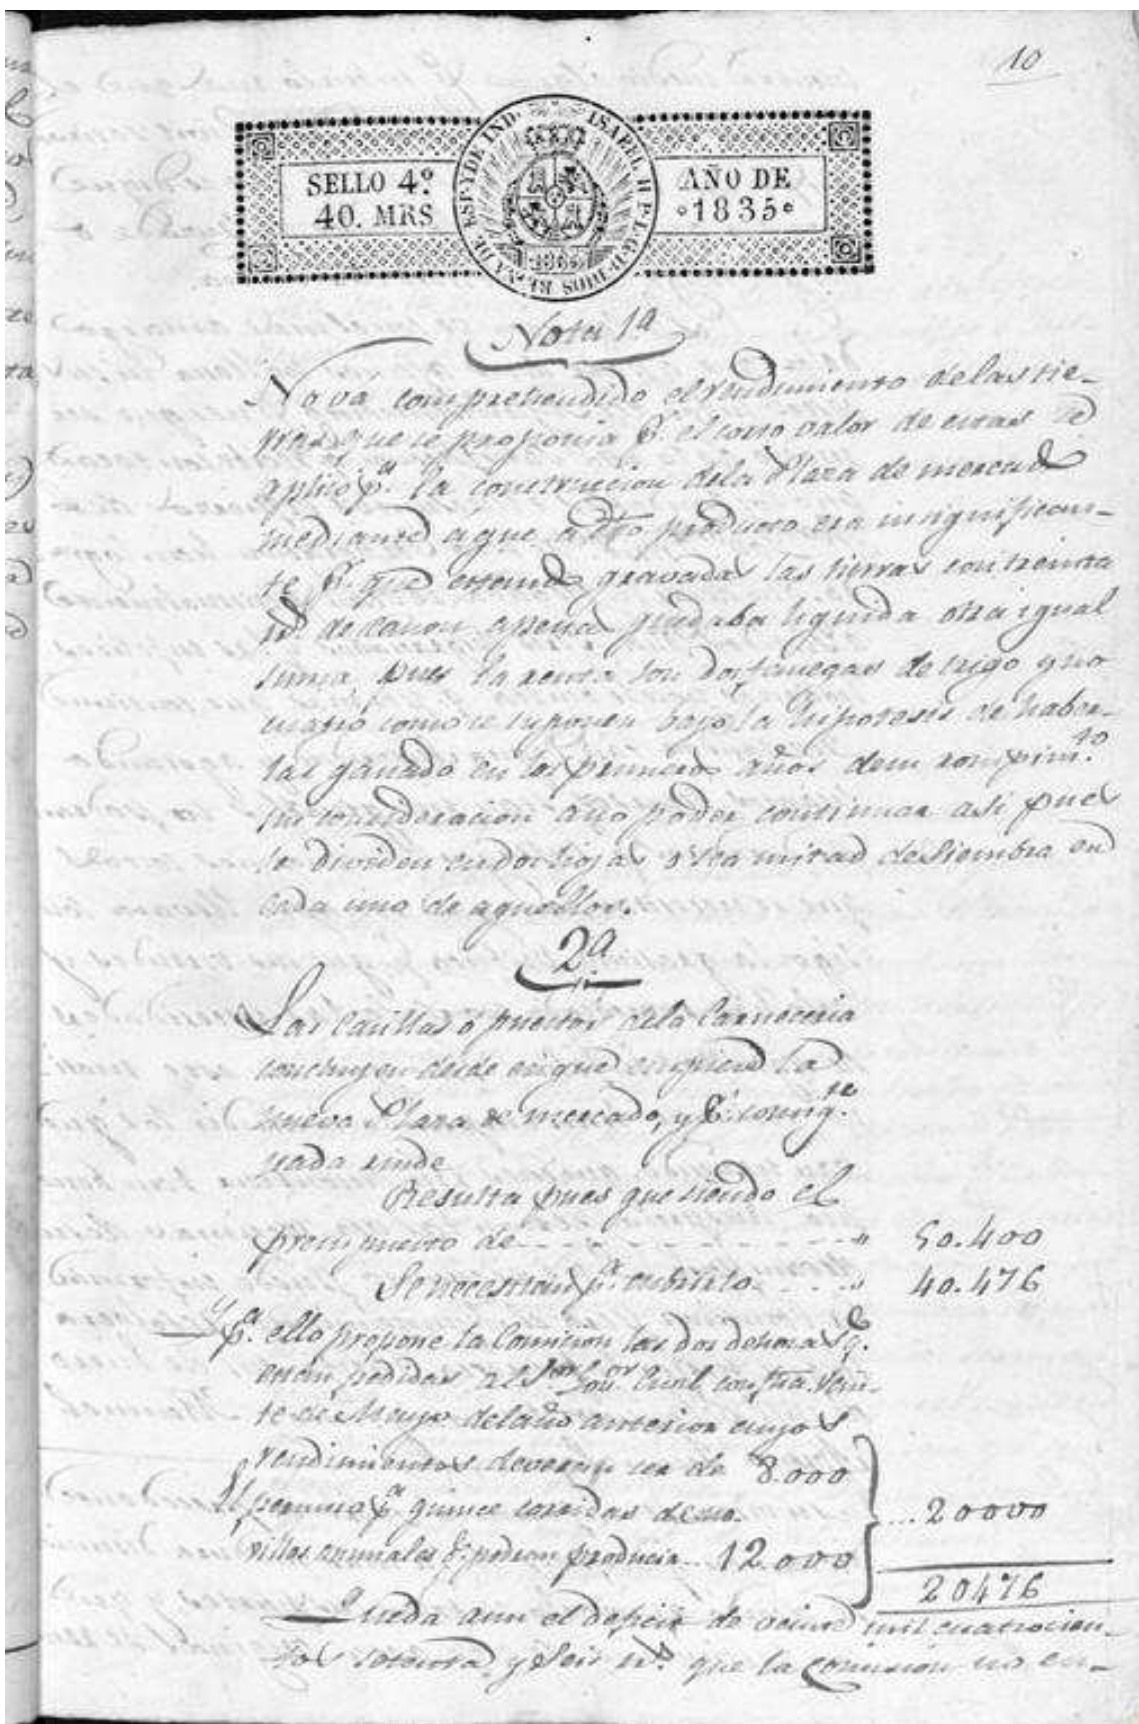 10
SELLO 4º
40. MRS
AÑO DE
1835
ISABEL II P. L. G. DE DIOS REYNA DE ESP. Y DE IND.
Nota 1ª
No va comprehendido el rendimiento de las tie-
rras que se proponia pr. el corto valor de
aplico pa. la construccion de la Plaza de mercado
mediante a que dho producto era insignifican-
te pr. qe estando gravadas las tierras con treinta
rs. de canon apenas quedaba liquida otra igual
suma, pues la renta son dos fanegas de trigo y no
cuatro como se suponen bajo la hipotesis de haber-
las ganado en los primeros años de su rompimto.
sin consideracion a no poder continuar asi pues
se dividen en dos hojas o sea mitad de siembra en
cada uno de aquellos.
2ª
Las casillas o puestos de la Carneceria
concluyen desde en que empiece la
nueva Plaza de mercado, y pr. consigte.
nada rinde
Resulta pues que siendo el
presupuesto de - - - - - - - - - " 50.400
Se necesitan pa. cubrirlo - - - - " 40.476
Y pa. ello propone la Comision las dos dehesas q.
estan pedidas al Sor. Gour. Civil con fha. vein-
te de Mayo del año anterior cuyos
rendimientos deveran ser de 8.000
El permiso pa. quince corridas de no-
villos anuales qe. podran producir... 12.000
... 20000
20476
Queda aun el deficit de veinte mil cuatrocien-
tos setenta y seis rs. que la comision no en-